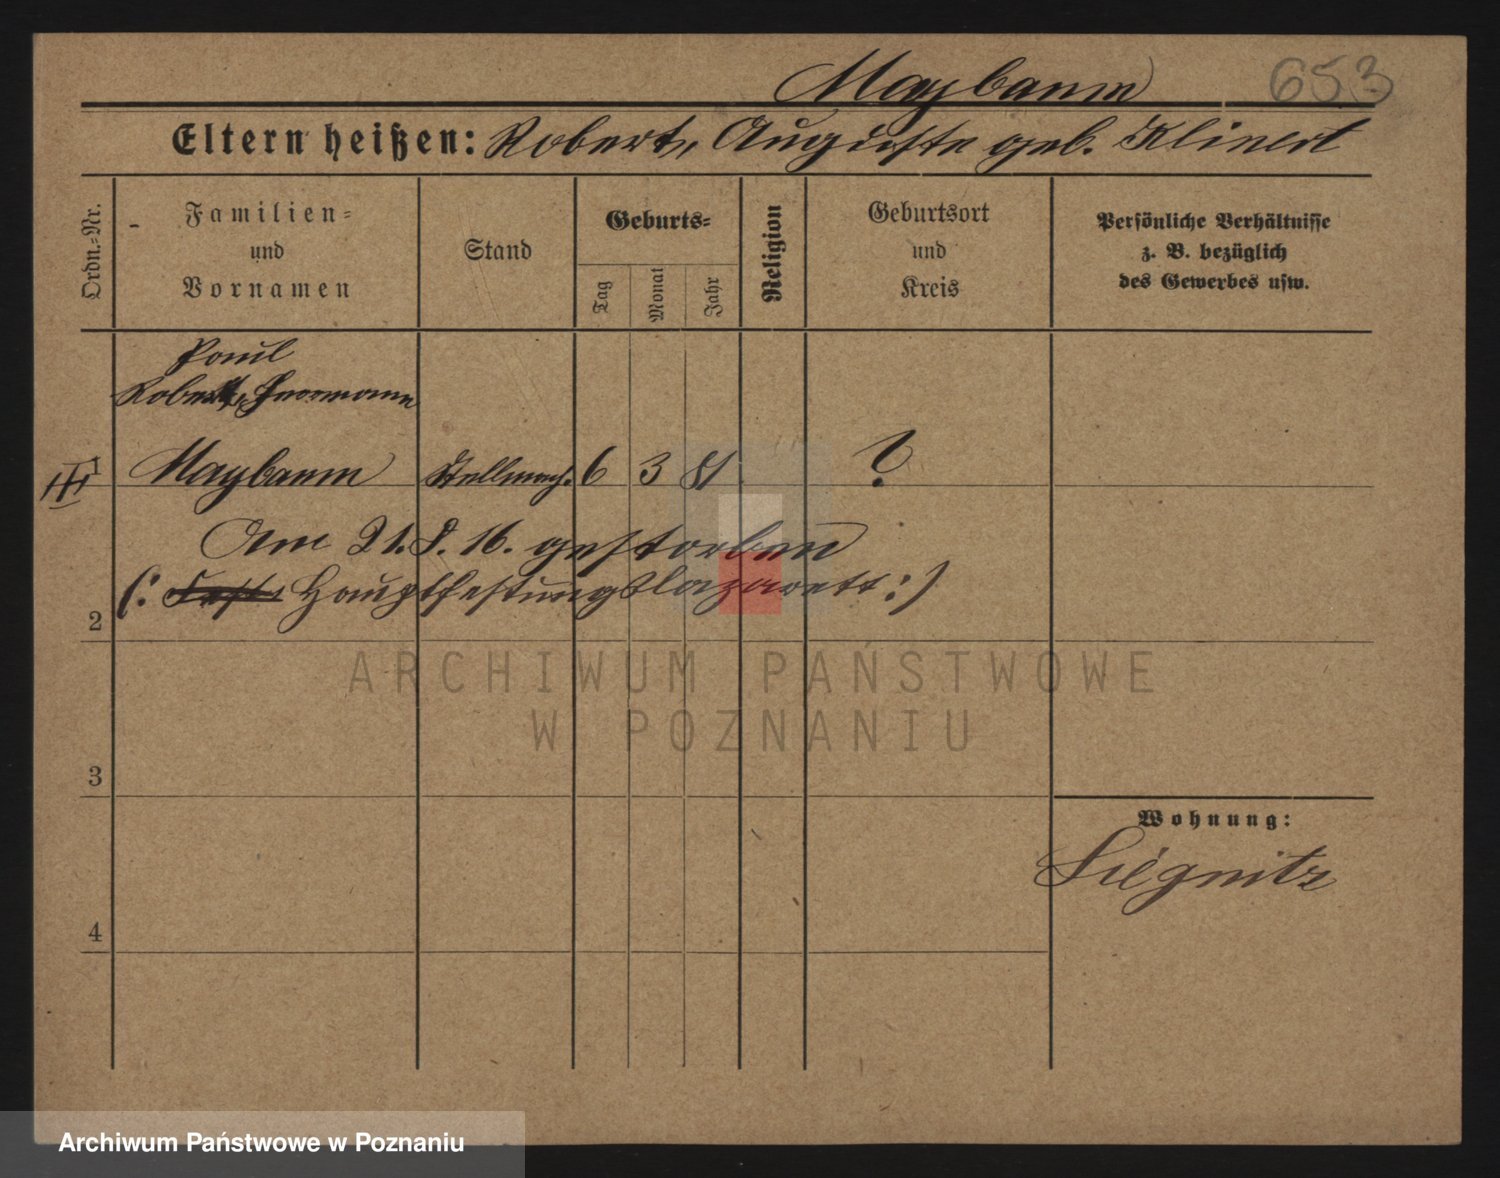 Maybaum 653
Eltern heißen: Robert, Auguste geb. Klinert
Ordn.=Nr.
Familien=
und
Vornamen
Stand
Geburts=
Tag
Monat
Jahr
Religion
Geburtsort
und
Kreis
Persönliche Verhältnisse
z. B. bezüglich
des Gewerbes usw.
Paul
Robert, Hermann
1 Maybaum Stellmach. 6 3 81 ?
Am 21.8.16. gestorben
2 (: Fest. Hauptfestungslazarett :)
ARCHIWUM PAŃSTWOWE
W POZNANIU
3
Wohnung:
Liegnitz
4
Archiwum Państwowe w Poznaniu